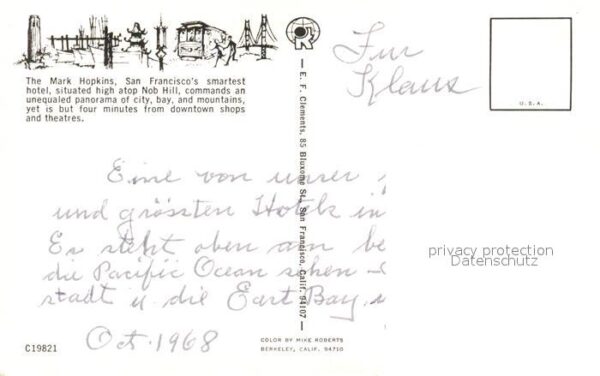 The Mark Hopkins, San Francisco's smartest
hotel, situated high atop Nob Hill, commands an
unequaled panorama of city, bay, and mountains,
yet is but four minutes from downtown shops
and theatres.
Für
Klaus
U.S.A.
— E. F. Clements, 85 Bluxome St., San Francisco, Calif. 94107 —
Eine von unser
und grössten Hotels in
Es steht oben am be
die Pacific Ocean sehen
stadt u. die East Bay.
Oct. 1968
privacy protection
Datenschutz
C19821
COLOR BY MIKE ROBERTS
BERKELEY, CALIF. 94710